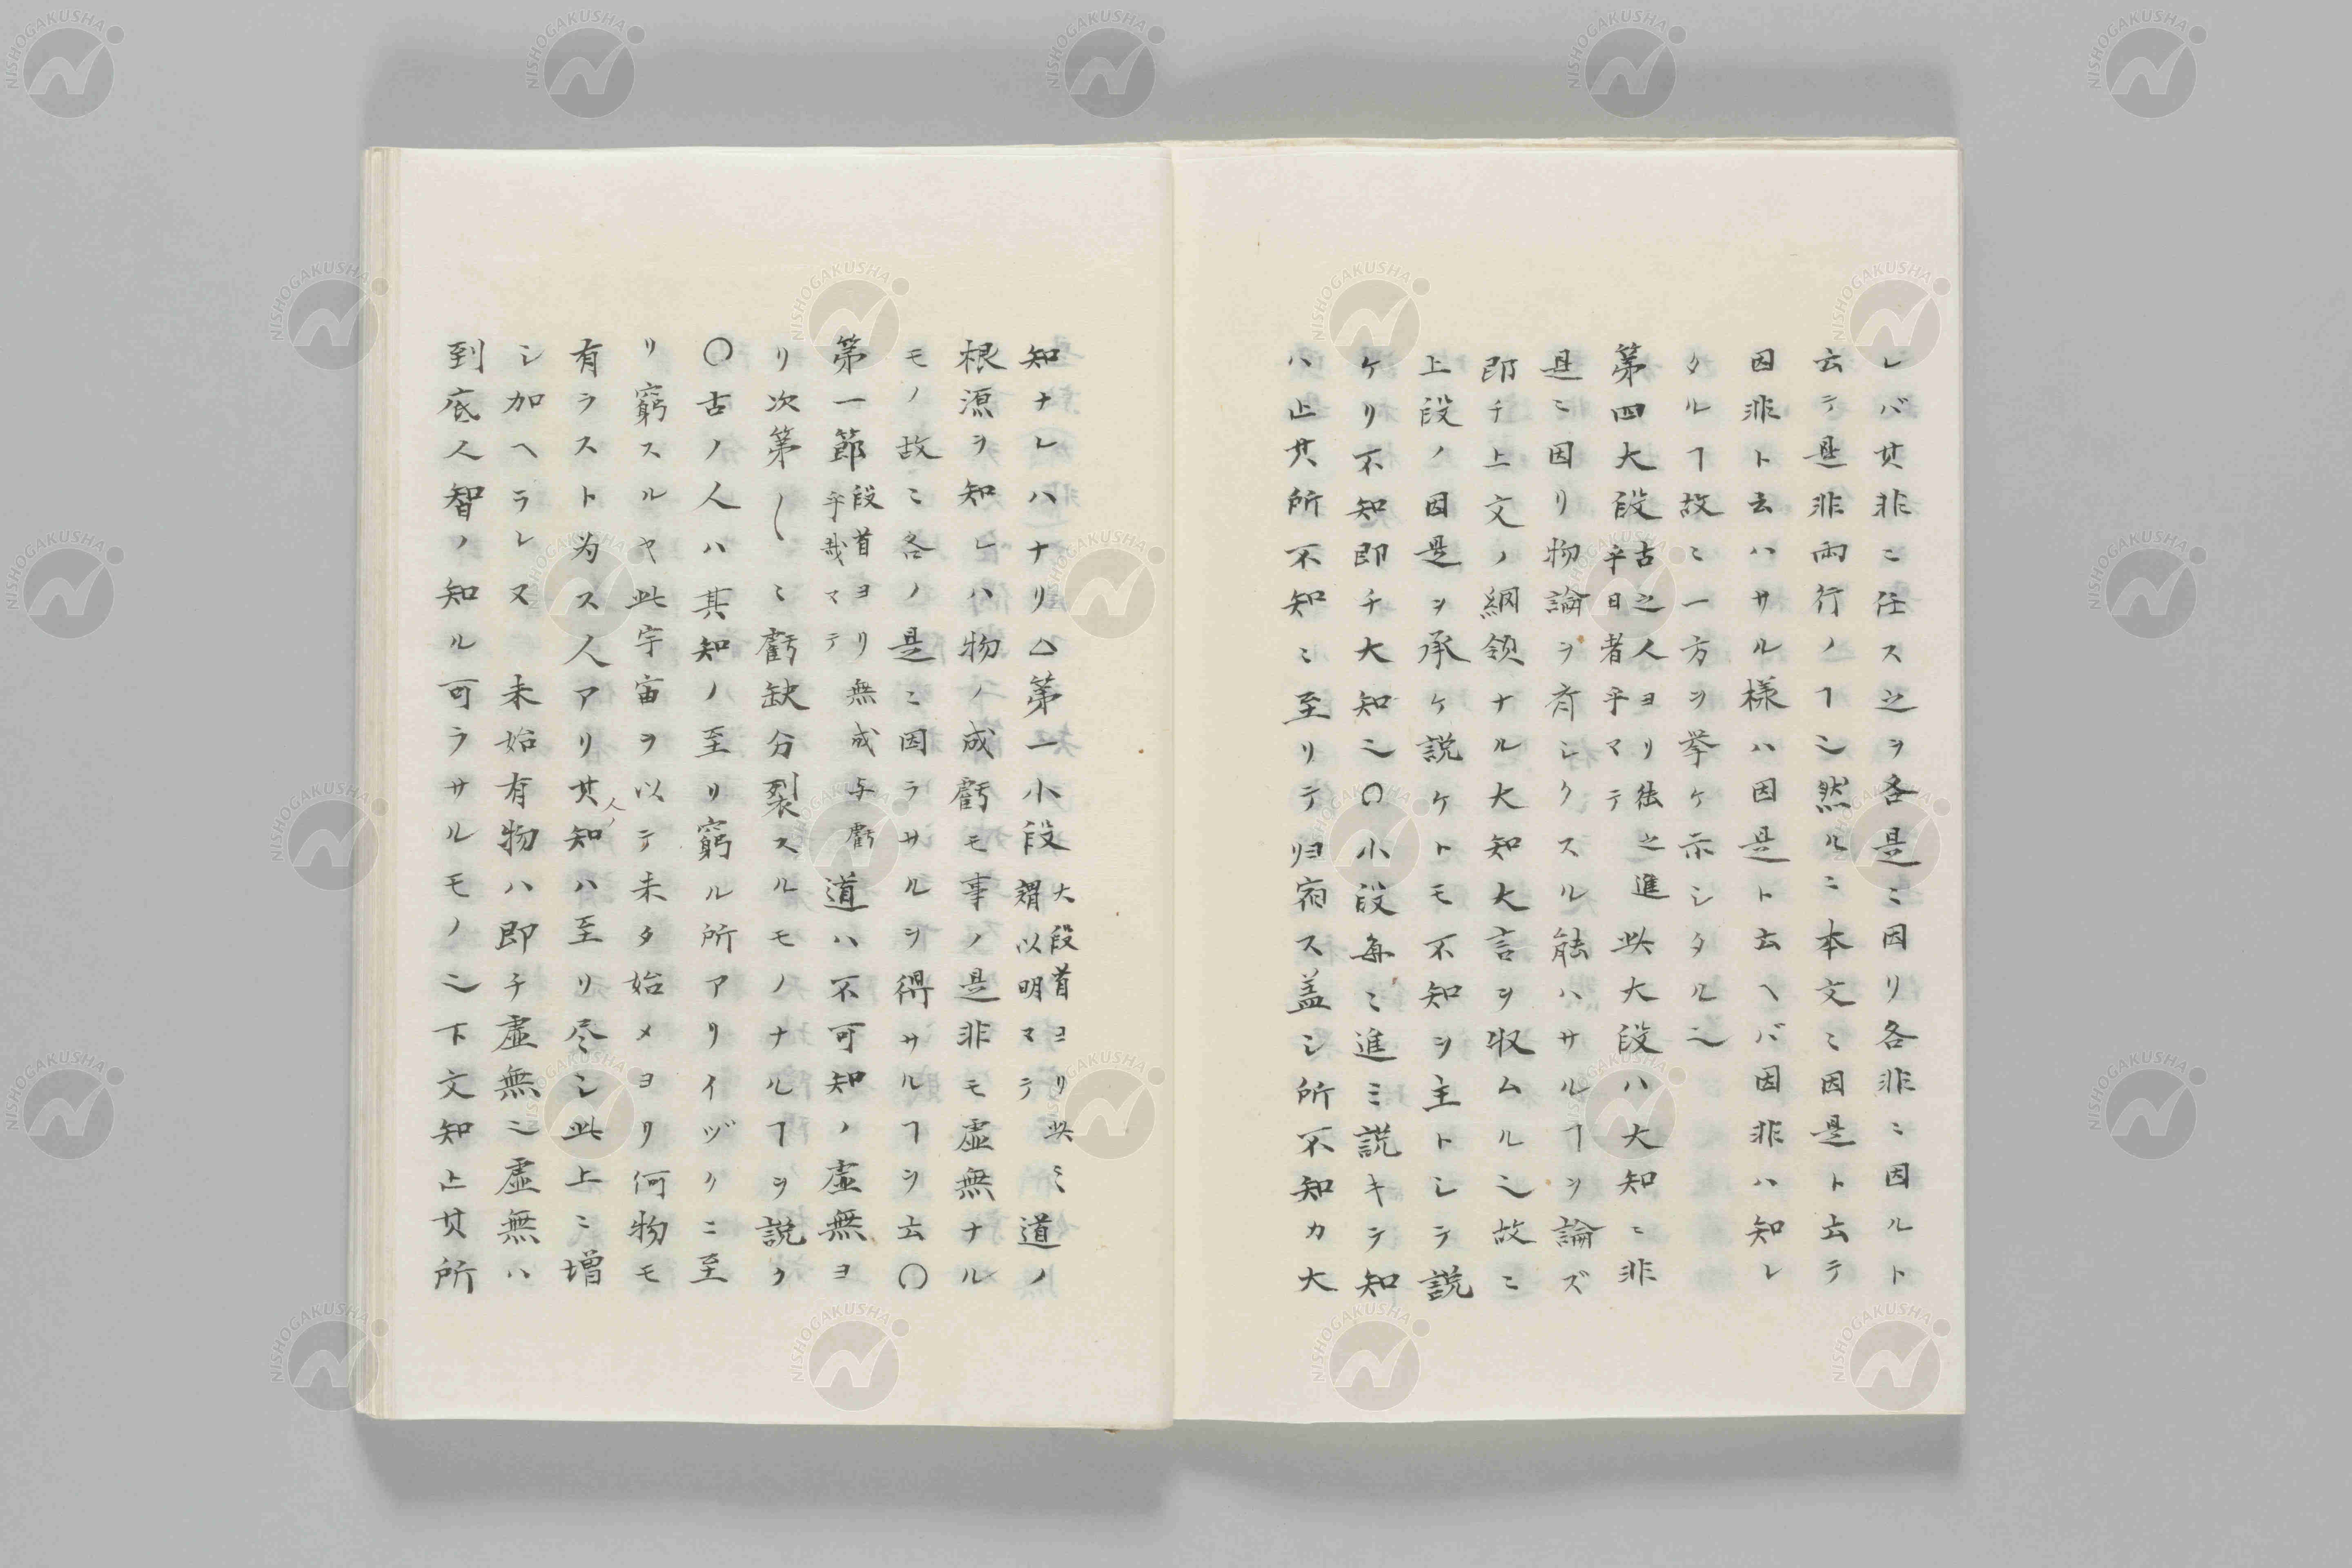 レバ其非ニ任ス之ヲ各是ニ因リ各非ニ因ルト
云テ是非両行ノヿ也然ルニ本文ニ因是ト云テ
因非ト云ハサル様ハ因是ト云ヘバ因非ハ知レ
タルヿ故ニ一方ヲ挙ケ示シタル也
第四大段古之人ヨリ徃之進
乎日者乎マテ此大段ハ大知ニ非
是ニ因リ物論ヲ斉シクスル能ハサルヿヲ論ズ
即チ上文ノ綱領ナル大知大言ヲ収ムル也故ニ
上段ノ因是ヲ承ケ説ケトモ不知ヲ主トシテ説
ケリ不知即チ大知也〇小段毎ニ進ミ説キテ知
ハ止其所不知ニ至リテ归宿ス盖シ所不知カ大
知ナレハナリ△第一小段大段首ヨリ此之
謂以明マテ道ノ
根源ヲ知レハ物ノ成虧モ事ノ是非モ虚無ナル
モノ故ニ各ノ是ニ因ラサルヲ得サルヿヲ云〇
第一節段首ヨリ無成与虧
乎哉マテ道ハ不可知ノ虚無ヨ
リ次第〱ニ虧缺分裂スルモノナルヿヲ説ク
〇古ノ人ハ其知ノ至リ窮ル所アリイヅクニ至
リ窮スルヤ此宇宙ヲ以テ未タ始メヨリ何物モ
有ラスト为ス人アリ其人ノ知ハ至リ尽シ此上ニ増
シ加ヘラレヌ 未始有物ハ即チ虚無也虚無ハ
到底人智ノ知ル可ラサルモノ也下文知止其所
NISHOGAKUSHA